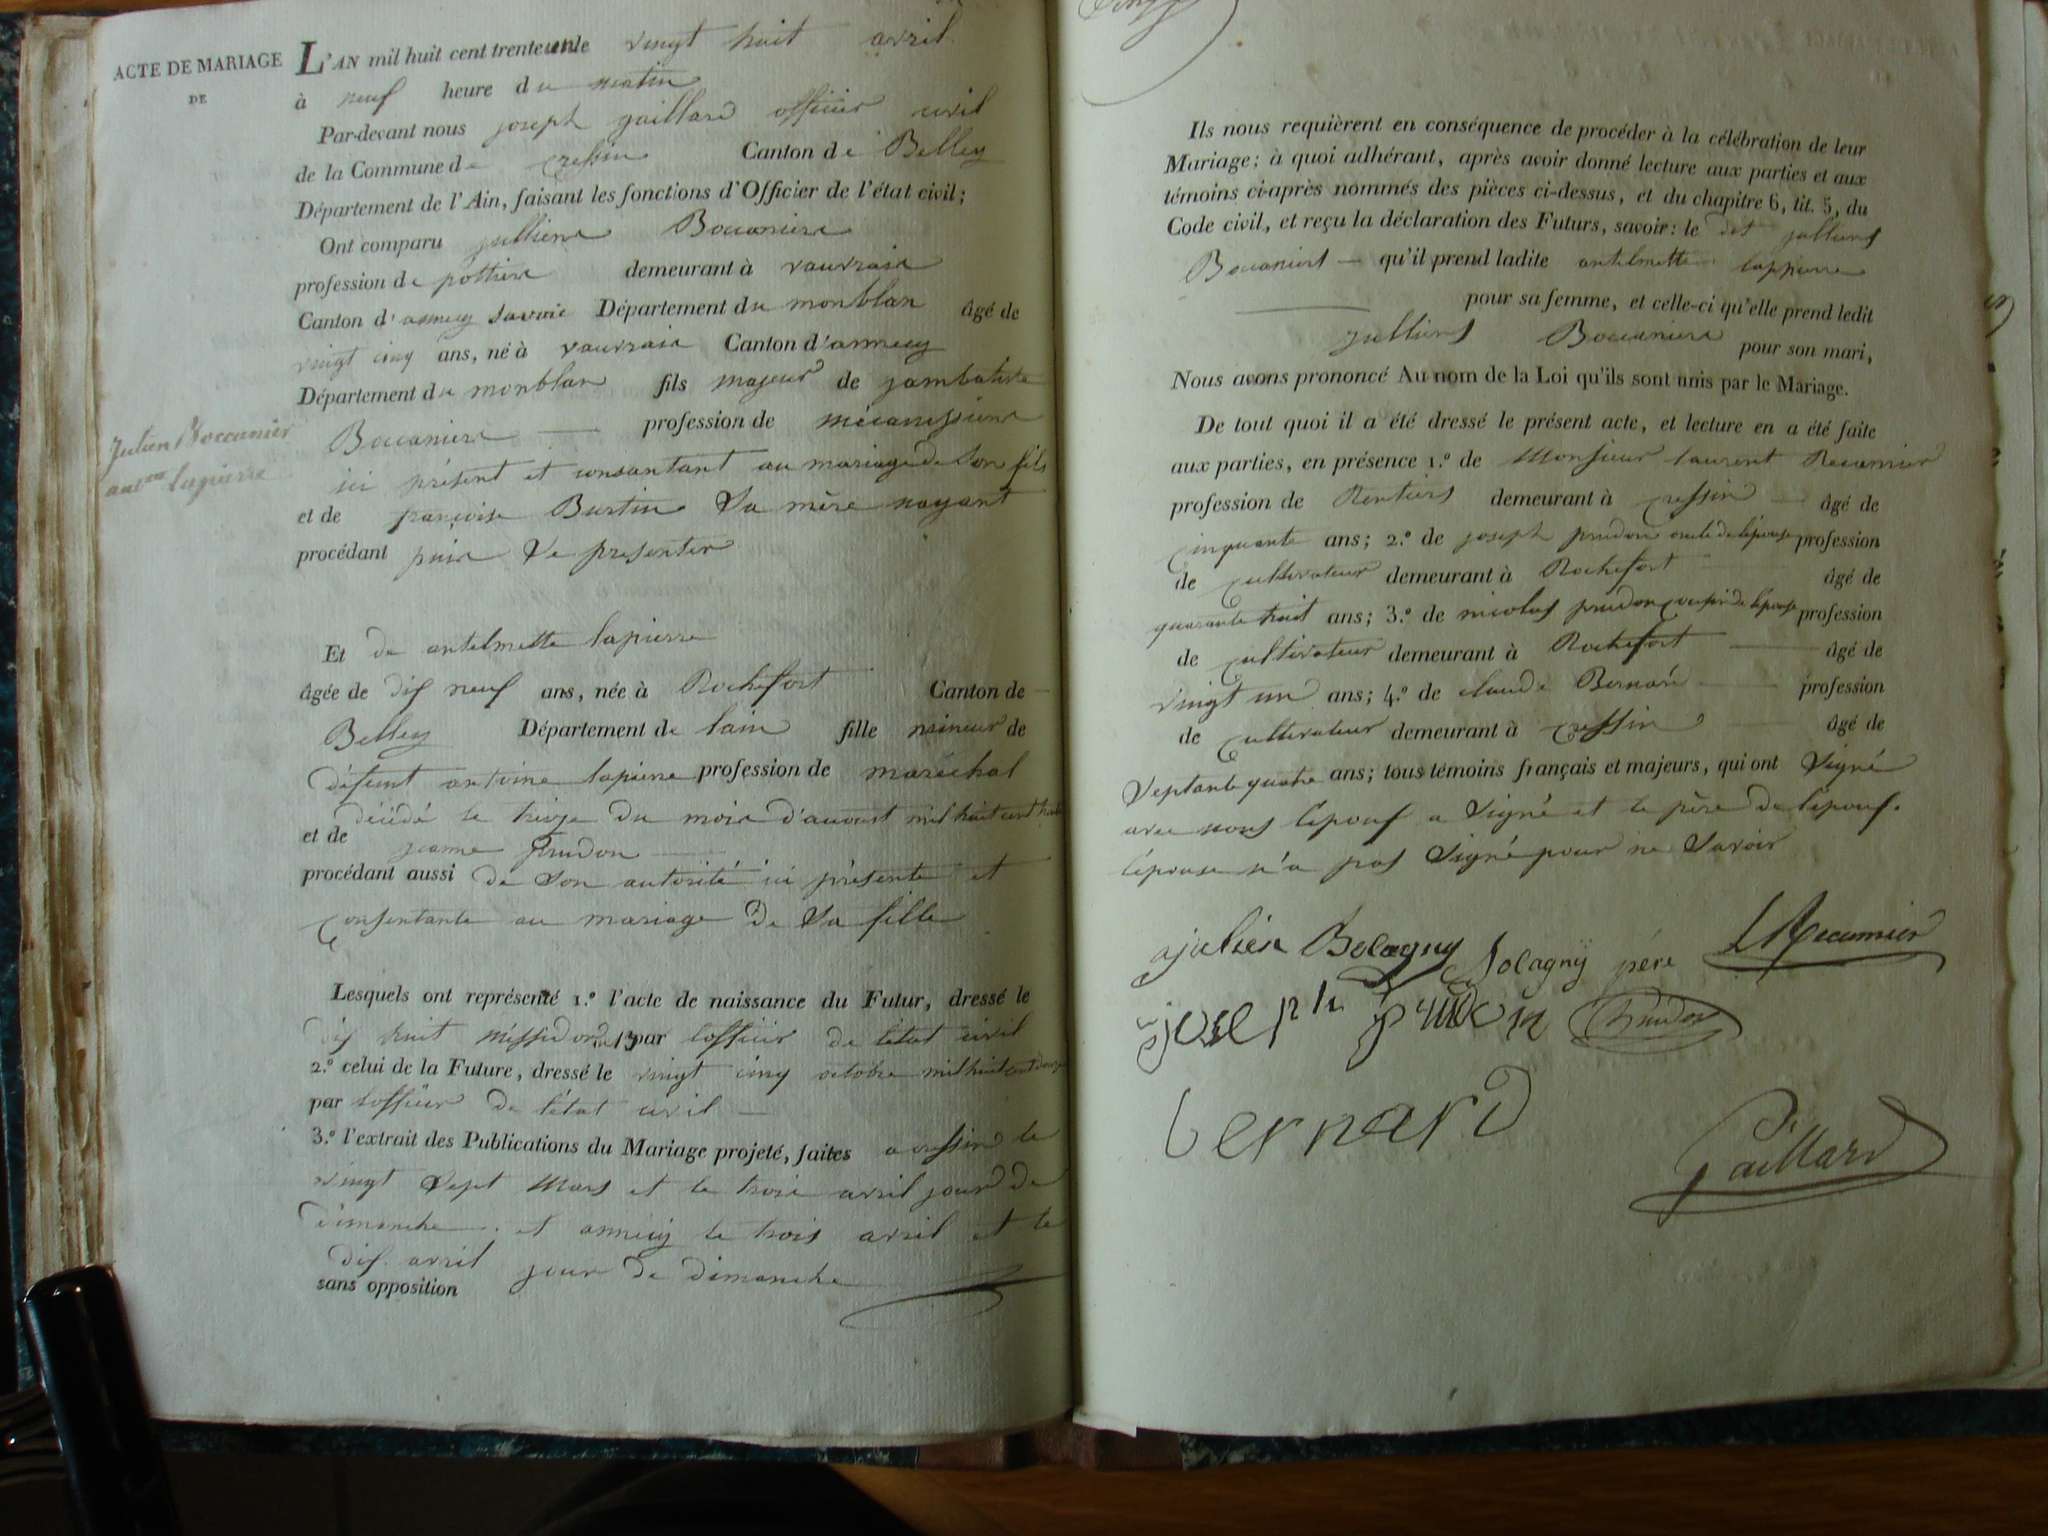 ACTE DE MARIAGE
DE
Julien Boccanier
lapierre
L'AN mil huit cent trente un le vingt huit avril
à neuf heure du matin
Par-devant nous joseph gaillard officier civil
de la Commune de cressin Canton de Belley
Département de l'Ain, faisant les fonctions d'Officier de l'état civil;
Ont comparu julliens Bocaniere
profession de pottier demeurant à vauvraie
Canton d'annecy savoie Département du monblan âgé de
vingt cinq ans, né à vauvraie Canton d'annecy
Département du monblan fils majeur de jambatiste
Bocaniere profession de mécanissiene
ici présent et consantant au mariage de son fils
et de françoise Burtin sa mère nayant
procédant puie se presenter
Et de antelmette lapierre
âgée de dis neuf ans, née à Rochefort Canton de
Belley Département de lain fille mineur de
défunt antoine lapierre profession de maréchal
décédé le treize du mois d'auoust mil huit cent
et de jeanne prudon
procédant aussi de son autorité ici présente et
consentante au mariage de sa fille
Lesquels ont représenté 1.º l'acte de naissance du Futur, dressé le
dis huit messidor 13 par lofficier de létat civil
2.º celui de la Future, dressé le vingt cinq octobre mil huit cent
par lofficier de létat civil
3.º l'extrait des Publications du Mariage projeté, faites a cressin le
vingt sept mars et le troie avril jour de
dimanche et annecy le trois avril et le
dis avril jour de dimanche
sans opposition
Ils nous requièrent en conséquence de procéder à la célébration de leur
Mariage; à quoi adhérant, après avoir donné lecture aux parties et aux
témoins ci-après nommés des pièces ci-dessus, et du chapitre 6, tit. 5, du
Code civil, et reçu la déclaration des Futurs, savoir: le dit julliens
Bocaniere qu'il prend ladite antelmette lappierre
pour sa femme, et celle-ci qu'elle prend ledit
julliens Bocaniere pour son mari,
Nous avons prononcé Au nom de la Loi qu'ils sont unis par le Mariage.
De tout quoi il a été dressé le présent acte, et lecture en a été faite
aux parties, en présence 1.º de Monsieur laurent Recamier
profession de Rentiers demeurant à cressin âgé de
cinquante ans; 2.º de joseph prudon oncle de lépouse profession
de cultivateur demeurant à Rochefort âgé de
quarante huit ans; 3.º de nicolas prudon cousin de lépouse profession
de cultivateur demeurant à Rochefort âgé de
vingt un ans; 4.º de claude Bernard profession
de cultivateur demeurant à cressin âgé de
septante quatre ans; tous témoins français et majeurs, qui ont signé
avec nous lépouf a signé et le père de lépouf.
lépouse n'a pas signé pour ne savoir
julien Bocagny Bocagny père LRecamier
joseph prudon Prudon
bernard
Gaillard